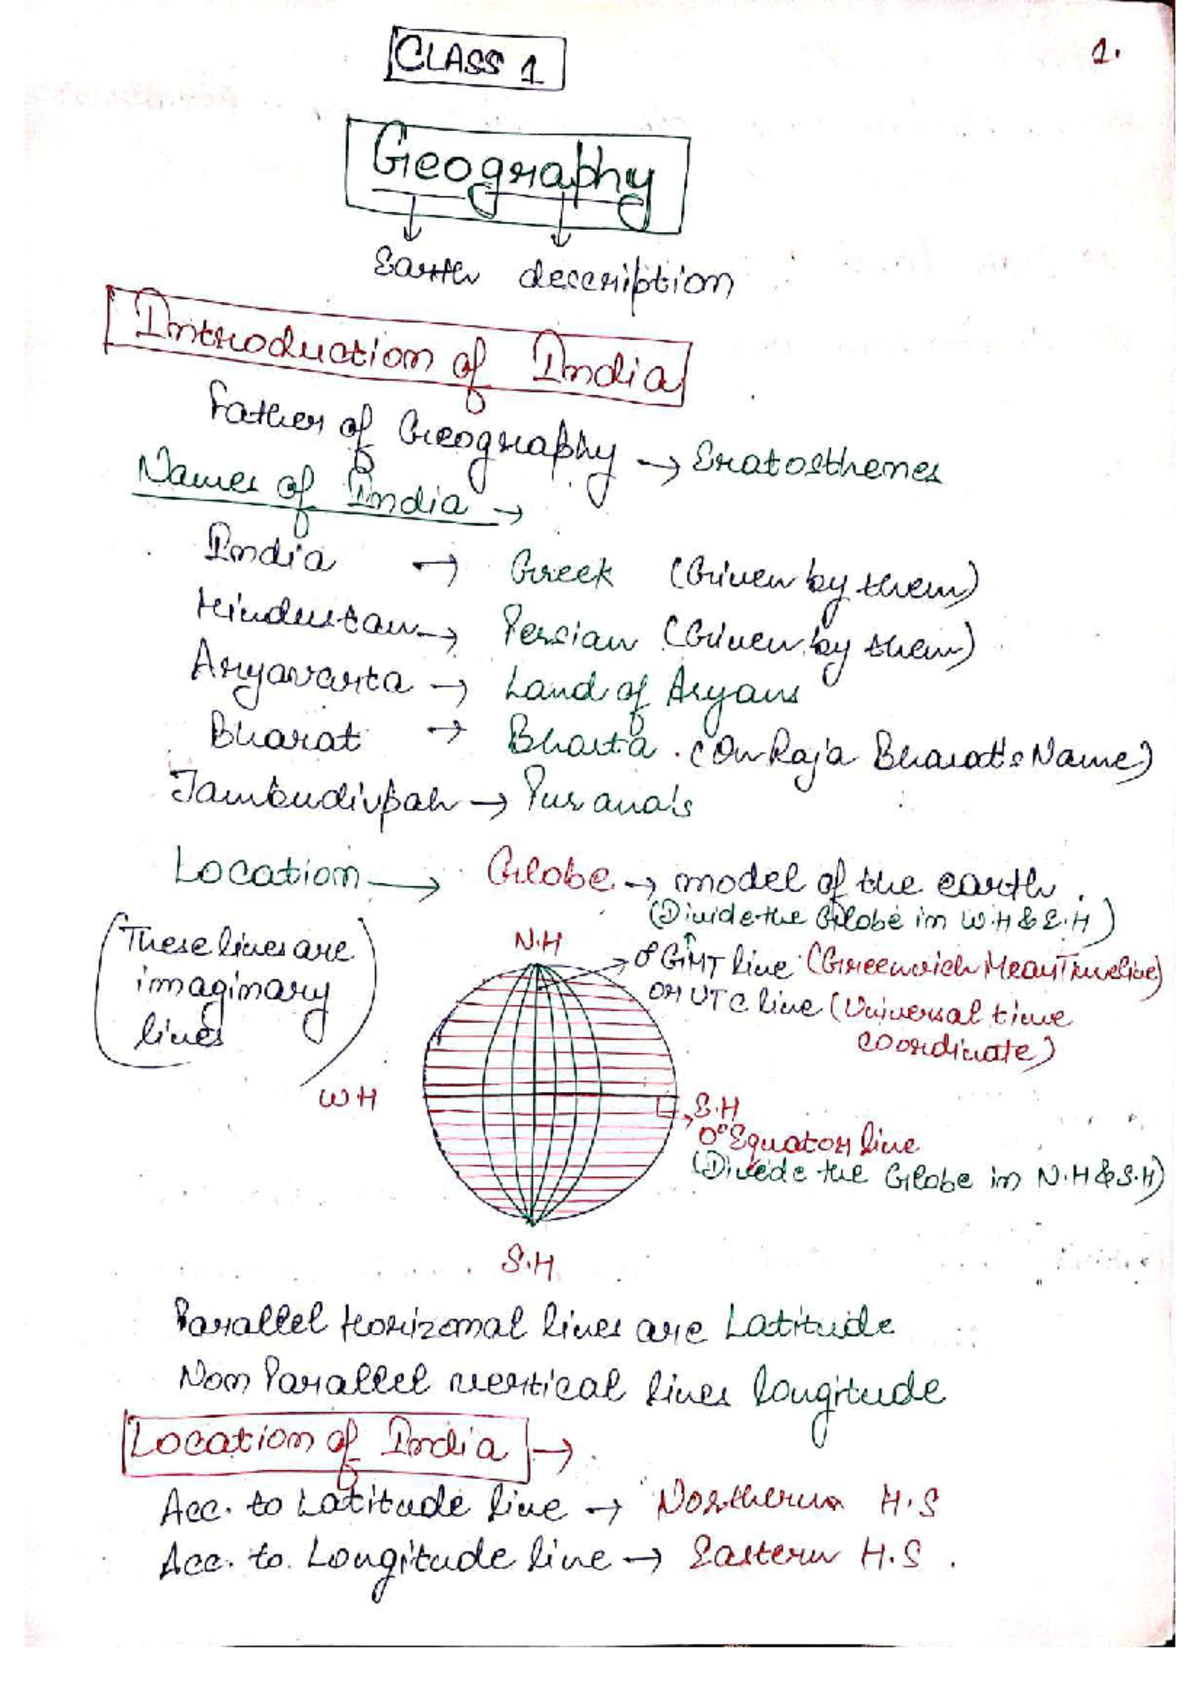 1.
CLASS 1
Geography
Earth description
Introduction of India
Father of Geography → Eratosthenes
Names of India →
India → Greek (Given by them)
Hindustan → Persian (Given by them)
Aryavarta → Land of Aryans
Bharat → Bharta. (On Raja Bharat's Name)
Jambudivpah → Purana's
Location → Globe → model of the earth.
(Divide the Globe in W.H & E.H)
(These lines are imaginary lines)
N.H
0° GMT line (Greenwich Mean Timeline)
or UTC line (Universal time coordinate)
WH
E.H
0° Equator line
(Divide the Globe in N.H & S.H)
S.H.
Parallel Horizonal lines are Latitude
Non Parallel vertical lines longitude
Location of India →
Acc. to Latitude line → Northern H.S
Acc. to Longitude line → Eastern H.S.